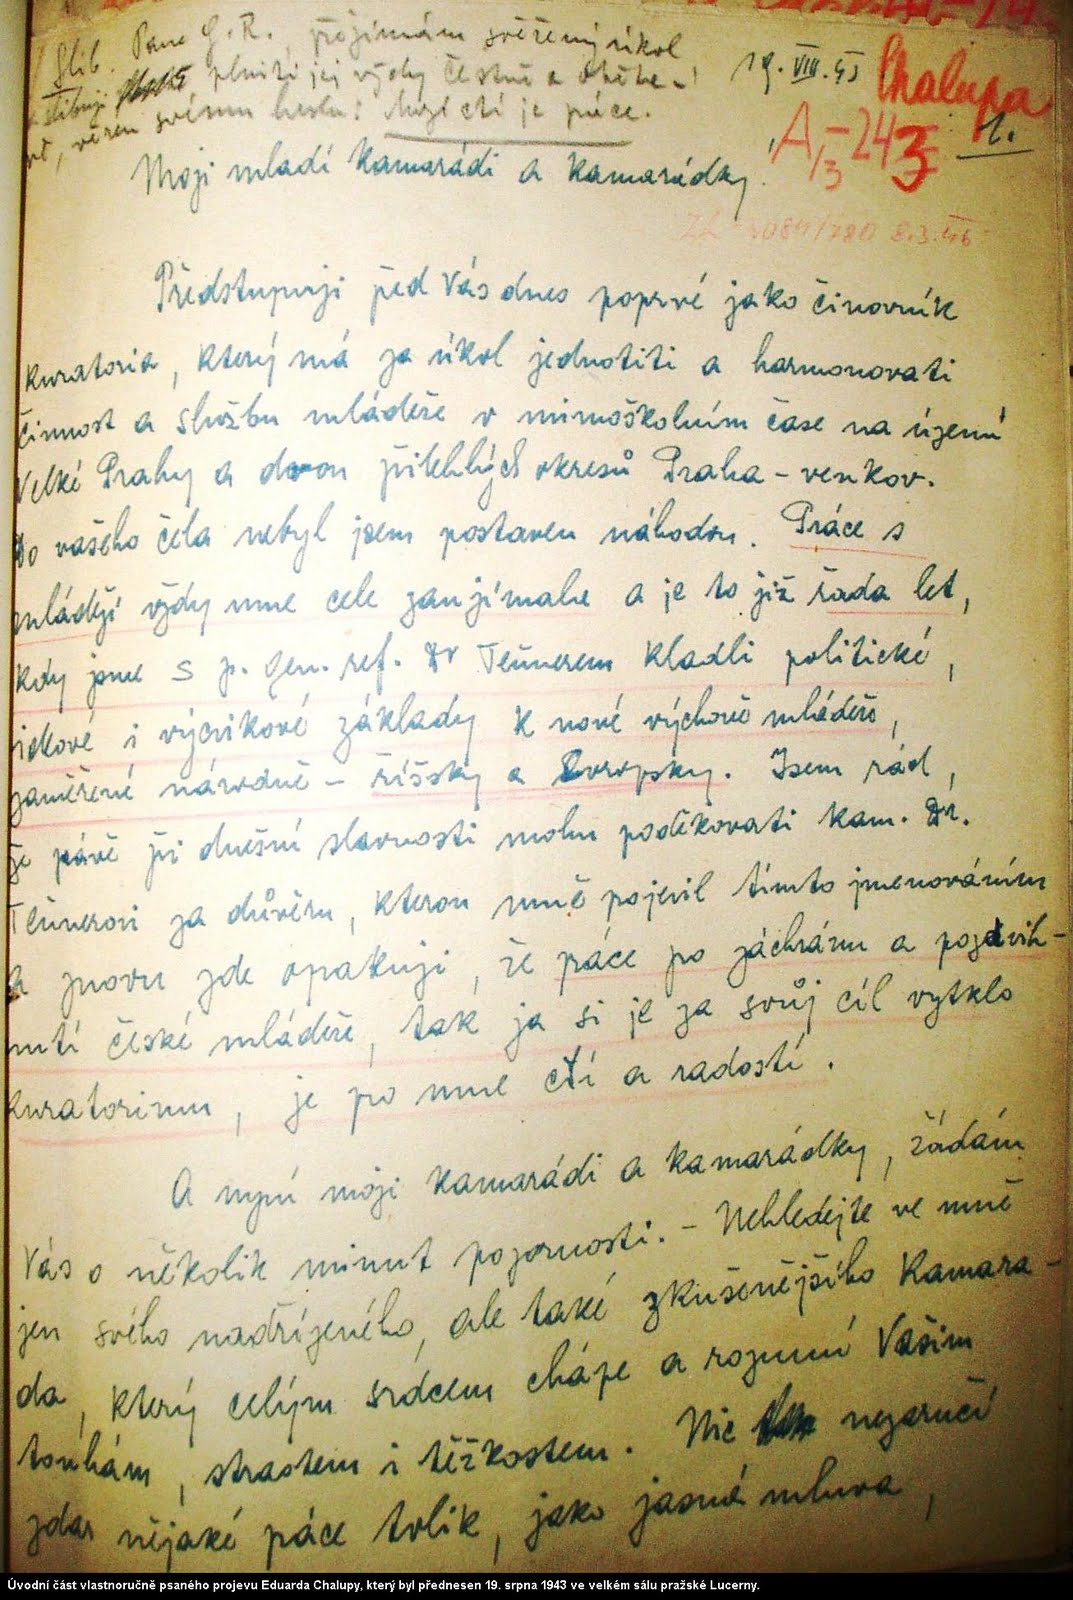 Slib. Pane G. R., přejímám svěřený úkol
slibuji plniti jej vždy čestně a
věren svému heslu: Mojí ctí je práce.
19. VIII. 43
Chalupa
A/3-243
1.
Moji mladí kamarádi a kamarádky.
8.3.46
Předstupuji před Vás dnes poprvé jako činovník
kuratoria, který má za úkol jednotiti a harmonovati
činnost a službu mládeže v mimoškolním čase na území
Velké Prahy a dvou přilehlých okresů Praha - venkov.
Do vašeho čela nebyl jsem postaven náhodou. Práce s
mládeží vždy mne cele zaujímala a je to již řada let,
kdy jsme s p. gen. ref. Dr Teunerem kladli politické,
i výcvikové základy k nové výchově mládeže,
zaměřené národně - říšsky a Evropsky. Jsem rád,
že pávě při dnešní slavnosti mohu poděkovati kam. Dr.
Teunerovi za důvěru, kterou mně pojevil tímto jmenováním
a znovu zde opakuji, že práce po záchranu a pozdvih-
nutí české mládeže, tak ja si je za svůj cíl vytklo
kuratorium, je pro mne ctí a radostí.
A nyní moji kamarádi a kamarádky, žádám
Vás o několik minut pozornosti. - Nehledejte ve mně
jen svého nadřízeného, ale také zkušenějšího kamara-
da, který celým srdcem chápe a rozumí Vašim
touhám, strastem i těžkostem. Nic nezaručí
zdar nějaké práce tolik, jako jasná mluva,
Úvodní část vlastnoručně psaného projevu Eduarda Chalupy, který byl přednesen 19. srpna 1943 ve velkém sálu pražské Lucerny.